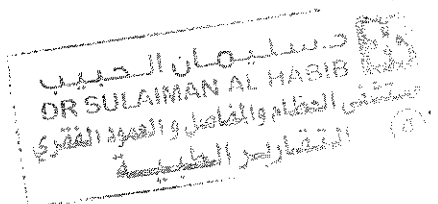 د. سليمان الحبيب
DR SULAIMAN AL HABIB
مستشفى العظام والمفاصل و العمود الفقري
التقارير الطبية